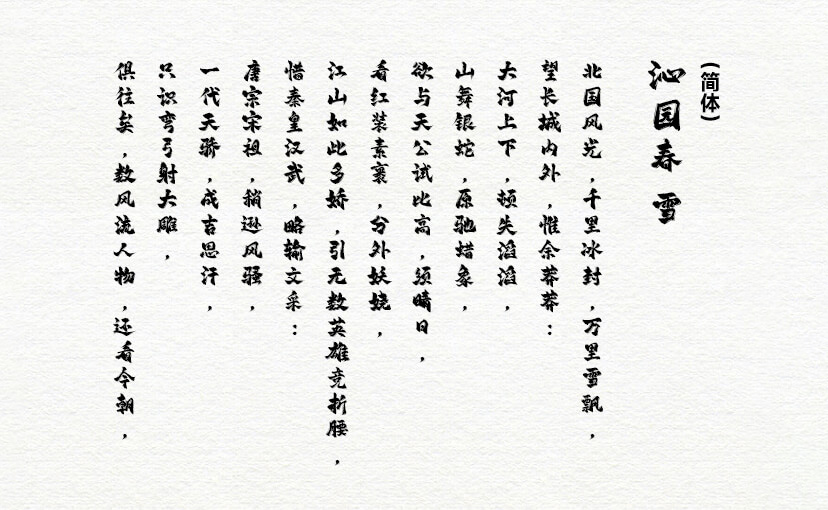 (简体)
沁园春 雪
北国风光,千里冰封,万里雪飘,
望长城内外,惟余莽莽:
大河上下,顿失滔滔,
山舞银蛇,原驰蜡象,
欲与天公试比高,须晴日,
看红装素裹,分外妖娆,
江山如此多娇,引无数英雄竞折腰,
惜秦皇汉武,略输文采:
唐宗宋祖,稍逊风骚,
一代天骄,成吉思汗,
只识弯弓射大雕,
俱往矣,数风流人物,还看今朝,